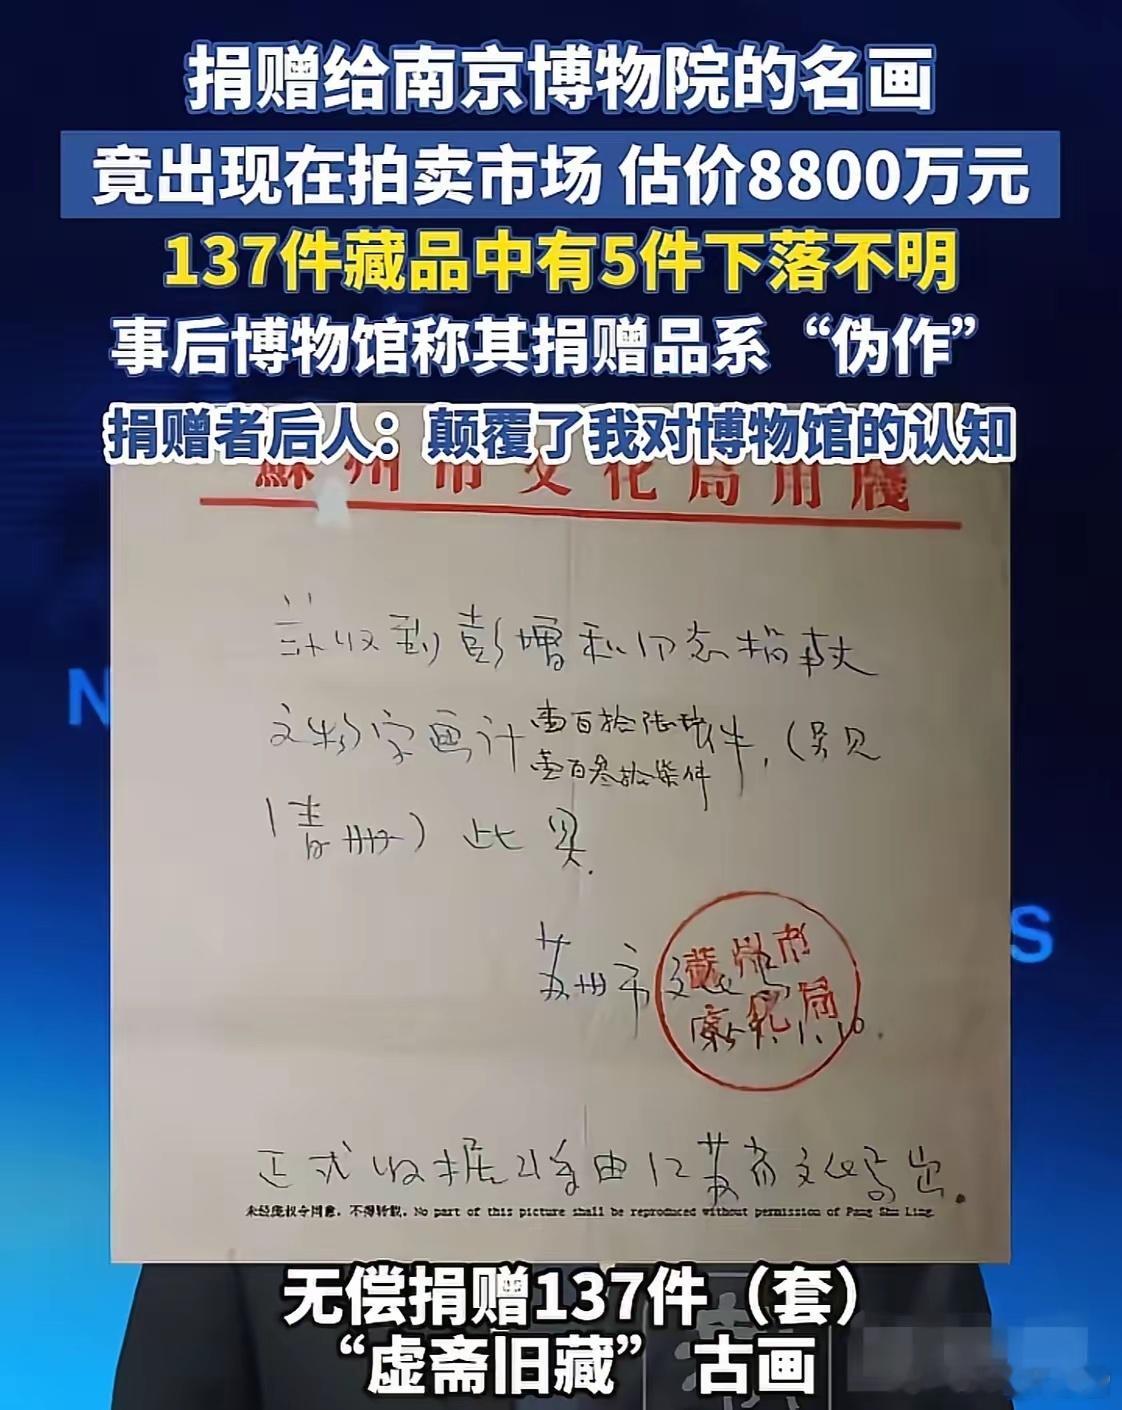 捐赠给南京博物院的名画
竟出现在拍卖市场 估价8800万元
137件藏品中有5件下落不明
事后博物馆称其捐赠品系“伪作”
捐赠者后人：颠覆了我对博物馆的认知
蘇州市文化局用牋
兹收到 捐献
文物字画计壹百 件，（另见
壹百叁拾柒件
清册）此具.
苏州市文化局
蘇州市
文化局
1.10.
正式收据 由江苏省文化局出.
未经庞叔令同意，不得转载。No part of this picture shall be reproduced without permission of Pang Shu Ling.
N
S
无偿捐赠137件（套）
“虚斋旧藏” 古画